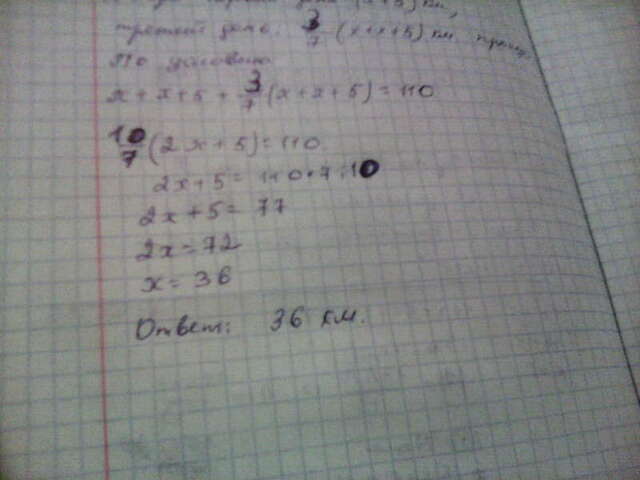 (x+5) км,
третий день. 3/7 (x+x+5) км
По условию
x + x + 5 + 3/7 (x + x + 5) = 110
10/7 (2x + 5) = 110
2x + 5 = 110 * 7 : 10
2x + 5 = 77
2x = 72
x = 36
Ответ: 36 км.